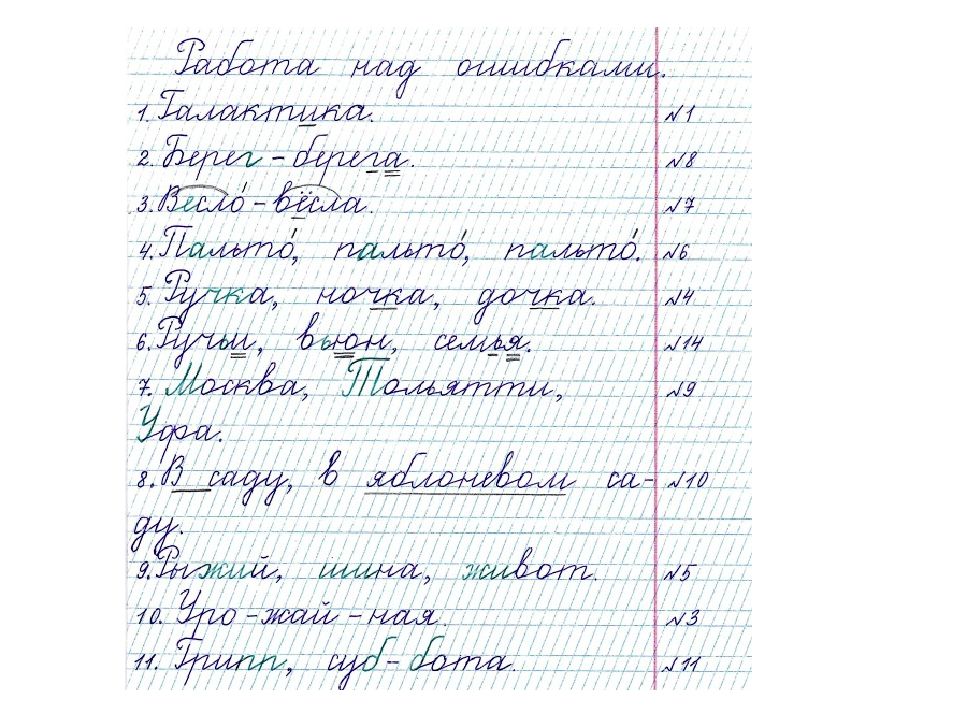 Работа над ошибками.
1. Галактика. №1
2. Берег - берега. №8
3. Весло́ - вёсла. №7
4. Пальто́, пальто́, пальто́. №6
5. Ручка, ночка, дочка. №4
6. Ручьи, вьюн, семья. №14
7. Москва, Тольятти, №9
Уфа.
8. В саду, в яблоневом са- №10
ду.
9. Рыжий, шина, живот. №5
10. Уро-жай-ная. №3
11. Грипп, суб-бота. №11